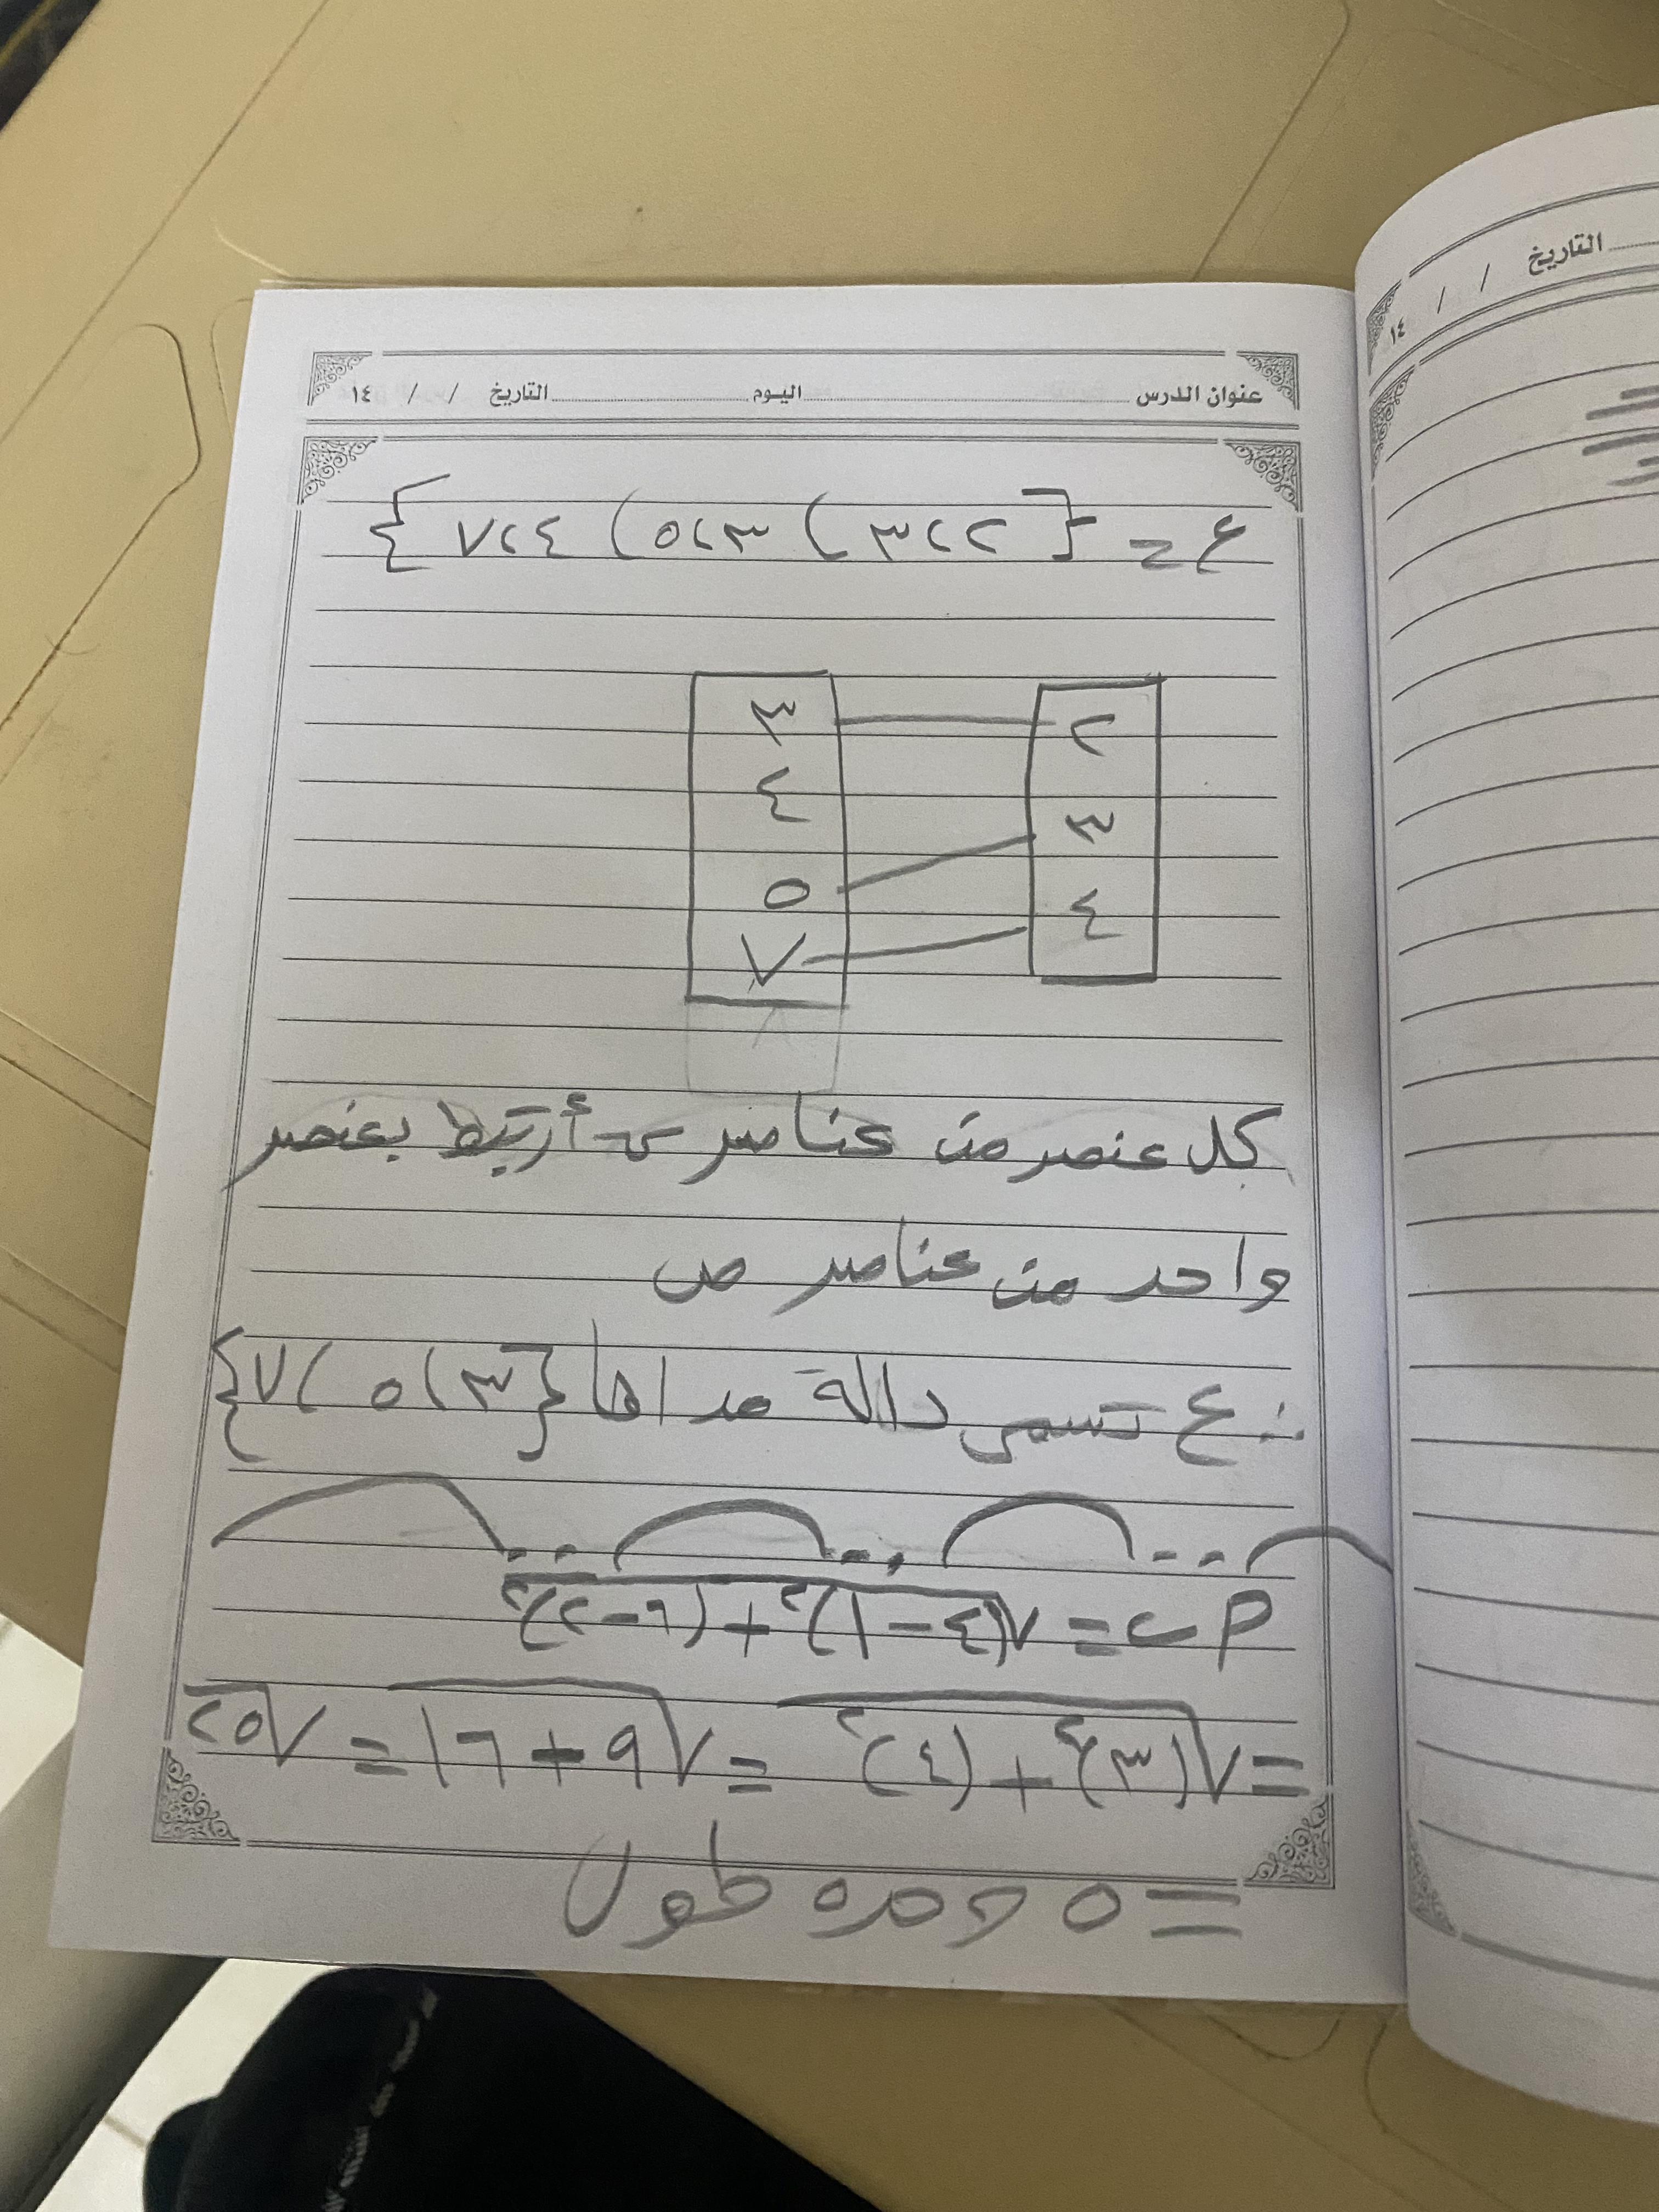 عنوان الدرس اليوم التاريخ / / ١٤
ع = { ٢،٣ ) ٣،٥ ) ٤،٧ }
٢ ٣
٣ ٤
٤ ٥
٧
كل عنصر من عناصر س أرتبط بعنصر
واحد من عناصر ص
∴ ع تسمى دالة مداها {٣،٥،٧}
م ب = √(٤-١)٢ + (٦-٢)٢
= √(٣)٢ + (٤)٢ = √٩ + ١٦ = √٢٥
= ٥ وحده طول
التاريخ / / ١٤